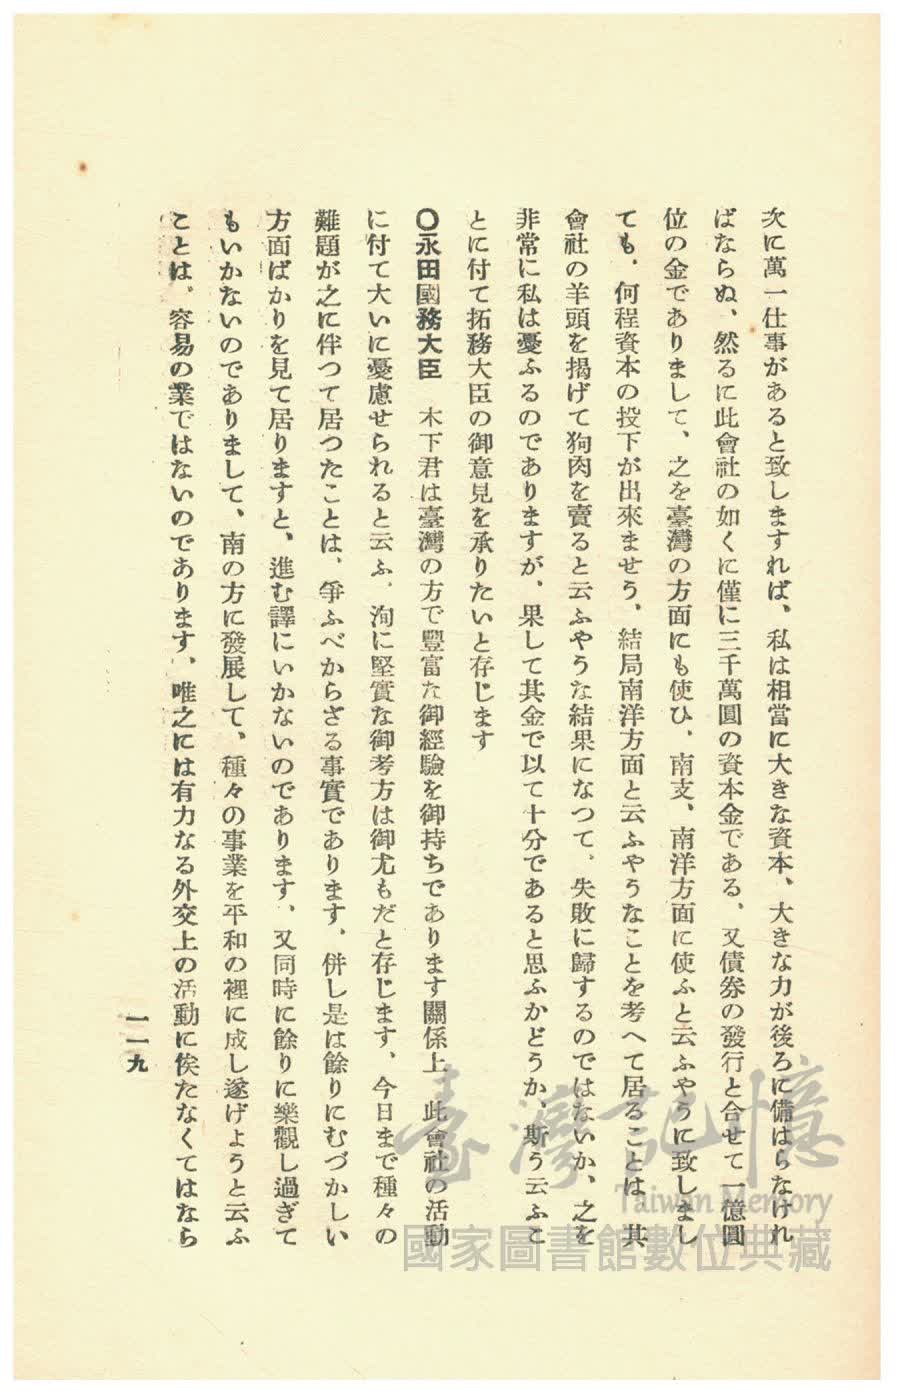 次に萬一仕事があると致しますれば、私は相當に大きな資本、大きな力が後ろに備はらなけれ
ばならぬ、然るに此會社の如くに僅に三千萬圓の資本金である、又債券の發行と合せて一億圓
位の金でありまして、之を臺灣の方面にも使ひ、南支、南洋方面に使ふと云ふやうに致しまし
ても、何程資本の投下が出來ませう、結局南洋方面と云ふやうなことを考へて居ることは、其
會社の羊頭を揭げて狗肉を賣ると云ふやうな結果になつて、失敗に歸するのではないか、之を
非常に私は憂ふるのでありますが、果して其金で以て十分であると思ふかどうか、斯う云ふこ
とに付て拓務大臣の御意見を承りたいと存じます
〇永田國務大臣　木下君は臺灣の方で豐富な御經驗を御持ちであります關係上、此會社の活動
に付て大いに憂慮せられると云ふ、洵に堅實な御考方は御尤もだと存じます、今日まで種々の
難題が之に伴つて居つたことは、爭ふべからざる事實であります、併し是は餘りにむづかしい
方面ばかりを見て居りますと、進む譯にいかないのであります、又同時に餘りに樂觀し過ぎて
もいかないのでありまして、南の方に發展して、種々の事業を平和の裡に成し遂げようと云ふ
ことは、容易の業ではないのであります、唯之には有力なる外交上の活動に俟たなくてはなら
一一九
臺灣記憶
Taiwan Memory
國家圖書館數位典藏